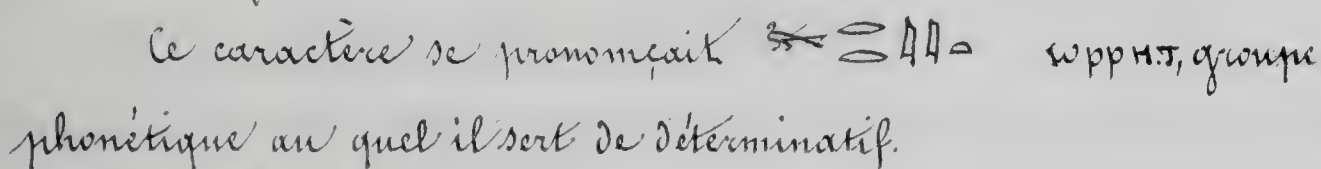 Ce caractère se prononçait 𓆱𓂋𓂋𓇋𓇋𓏏 ⲱⲣⲣⲏ.ⲧ, groupe
phonétique au quel il sert de déterminatif.